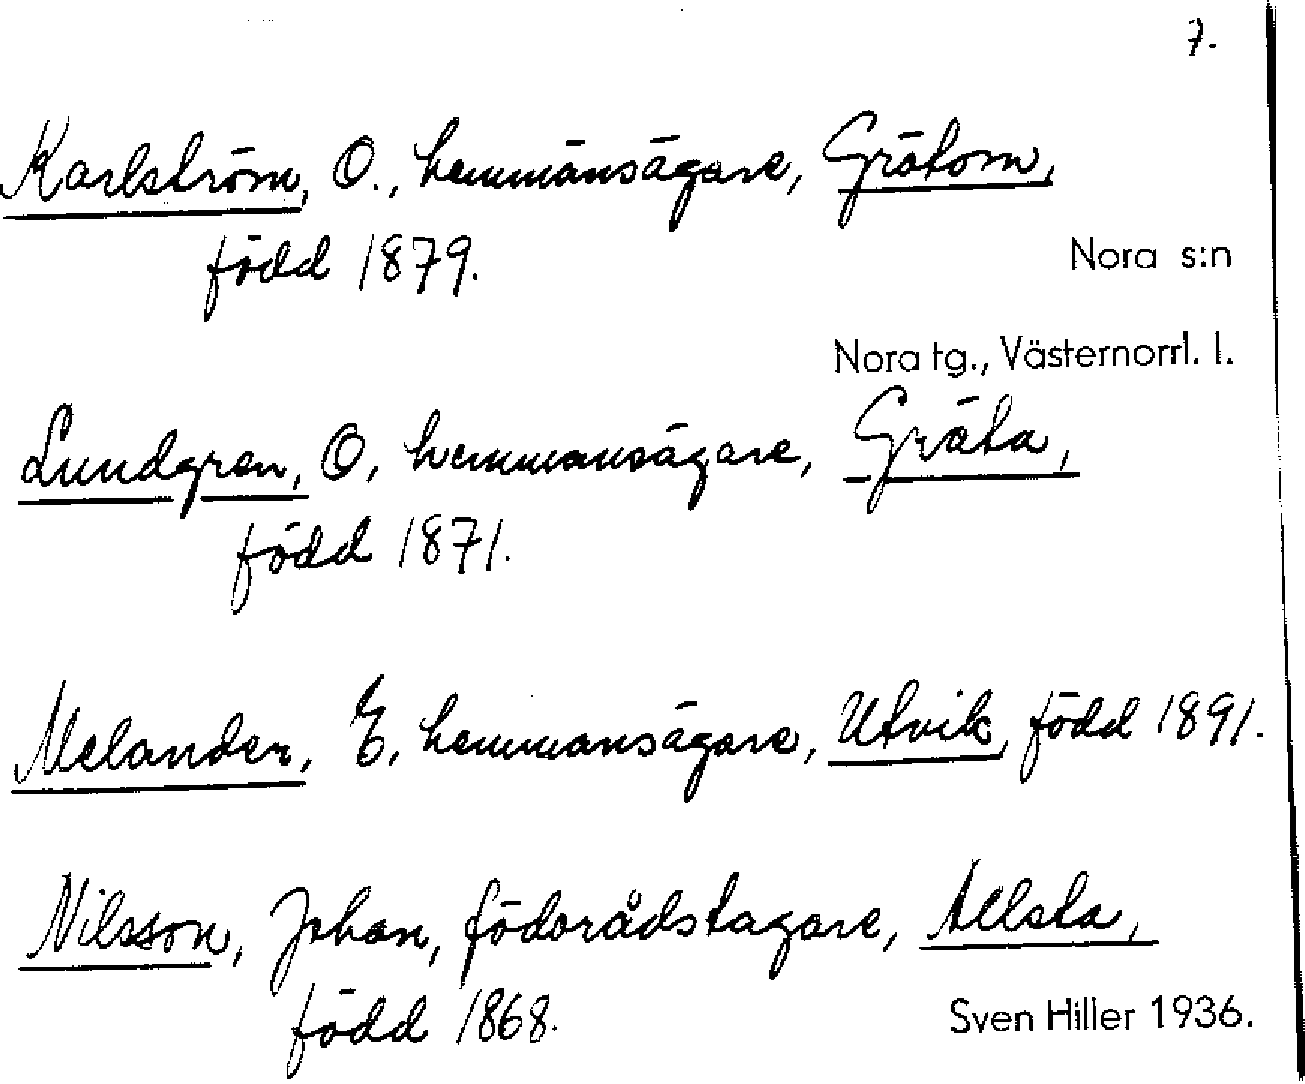 7.
Karlström, O., hemmansägare, Grätom,
född 1879.
Nora s:n
Nora tg., Västernorrl. l.
Lundgren, O, hemmansägare, Gräta,
född 1871.
Melander, E, hemmansägare, Utvik, född 1891.
Nilsson, Johan, födorådstagare, Allsta,
född 1868.
Sven Hiller 1936.